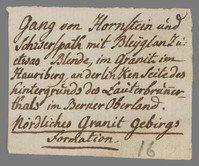 Gang von Hornstein und
Schwerspath mit Bleyglanz u:
etwas Blende, im Granit im
Hauriberg, an der linken Seite des
hintergrunds des Lauterbruner
thals im Berner Oberland.
Nördliches Granit Gebirgs
Formation
16